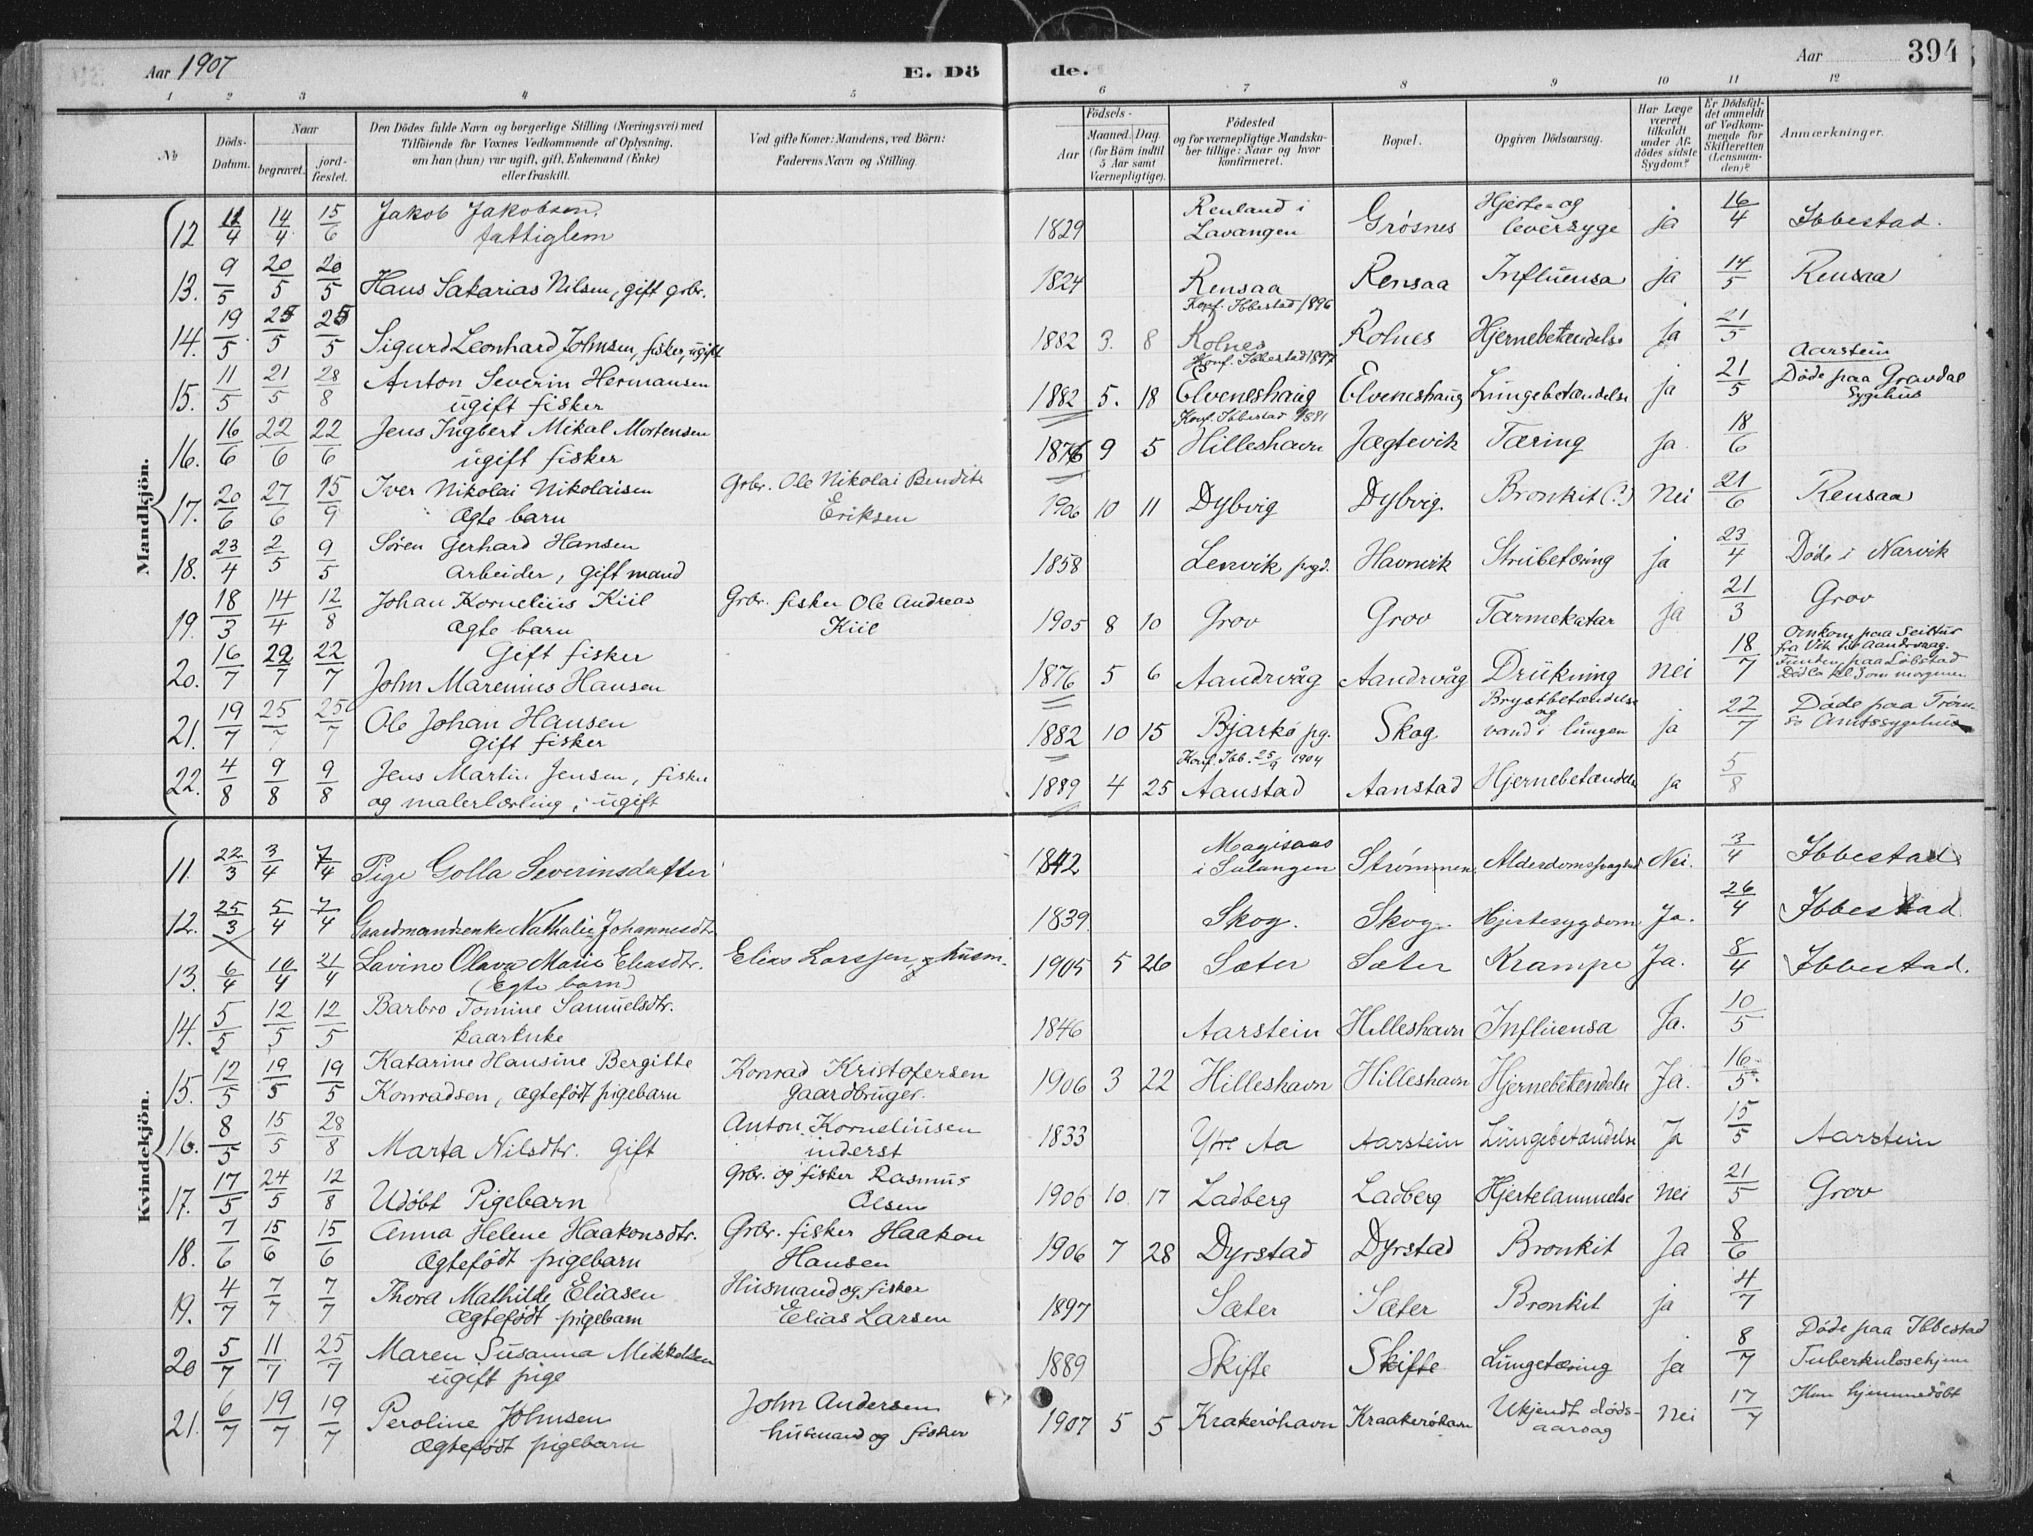 Aar 1907
E. Dö
de.
Aar
394
1 2 3 4 5 6 7 8 9 10 11 12
No
Döds-Datum.
Naar
begravet.
jordfæstet.
Den Dödes fulde Navn og borgerlige Stilling (Næringsvei) med
Tilföiende for Voxnes Vedkommende af Oplysning,
om han (hun) var ugift, gift, Enkemand (Enke)
eller fraskilt.
Ved gifte Koner: Mandens, ved Börn:
Faderens Navn og Stilling.
Födsels-
Aar
Maaned. Dag.
(for Börn indtil
5 Aar samt
Værnepligtige).
Födested
og for værnepligtige Mandskaber
tillige: Naar og hvor
konfirmeret.
Bopæl.
Opgiven Dödsaarsag.
Har Læge
været
tilkaldt
under Afdödes
sidste
Sygdom?
Er Dödsfaldet
anmeldt
af Vedkommende
for
Skifteretten
(Lensmanden)?
Anmærkninger.
Mandkjön.
12 11/4 14/4 15/6 Jakob Jakobsen, fattiglem 1829 Renland i Lavangen Grøsnes Hjerte- og leversyge ja 16/4 Ibbestad.
13. 9/5 20/5 20/5 Hans Sakarias Nilsen, gift grbr. 1824 Rensaa Rensaa Influensa ja 14/5 Rensaa
14. 19/5 25/5 25/5 Sigurd Leonhard Johnsen, fisker, ugift 1882 3. 8 Konf. Ibbestad 1896 Rolnes Rolnes Hjernebetændelse ja 21/5
15. 11/5 21/5 28/8 Anton Severin Hermansen ugift fisker 1882 5. 18 Konf. Ibbestad 1897 Elveneshaug Elveneshaug Lungebetændelse ja 21/5 Aarstein Døde paa Gravdal Sygehus
16. 16/6 22/6 22/6 Jens Ingbert Mikal Mortensen ugift fisker 1876 9 5 Konf. Ibbestad 1891 Hilleshavn Jægtevik Tæring ja 18/6
17. 20/6 27/6 15/9 Iver Nikolai Nikolaisen Ægte barn Grbr. Ole Nikolai Bendik Eriksen 1906 10 11 Dybvig Dybvig. Bronkit (?) Nei 21/6 Rensaa
18. 23/4 2/5 9/5 Søren Gerhard Hansen Arbeider, gift mand 1858 Lenvik prgd. Havnvik Strubetæring ja 23/4 Døde i Narvik
19. 18/3 14/4 12/8 Johan Kornelius Kiil Ægte barn Grbr. fisker Ole Andreas Kiil 1905 8 10 Grov Grov Tarmekatar ja 21/3 Grov
20. 16/7 22/7 22/7 Gift fisker John Marenius Hansen 1876 5 6 Aandrvåg Aandrvåg Drukning nei 18/7 Omkom paa Seitur fra Vik til Aandrvaag. Funden paa Løbstad
21. 19/7 25/7 25/7 Ole Johan Hansen Gift fisker 1882 10 15 Bjarkø pg. Skog. Brystbetændelse og vand i lungen ja 22/7 Døde paa Tromsø Amtssygehus
22. 4/8 9/8 9/8 Jens Martin Jensen, fisker og malerlærling, ugift 1889 4 25 Konf. Ibb. 25/9 1904 Aanstad Aanstad Hjernebetændelse ja 5/8
Kvindekjön.
11. 22/3 3/4 7/4 Pige Golla Severinsdatter 1842 i Salangen Strømmen. Alderdomssvaghed Nei. 3/4 Ibbestad
12. 25/3 5/4 7/4 Gaardmandsenke Nathalie Johannesdt. 1839. Skog. Skog. Hjertesygdom Ja. 26/4 Ibbestad
13. 6/4 10/4 21/4 Lavine Olava Marie Eliasdtr. (Egte barn) Elias Larssen, husm. 1905 5 26 Sæter Sæter Krampe Ja. 8/4 Ibbestad.
14. 5/5 12/5 12/5 Barbro Tomine Samuelsdtr. kaarenke 1846 Aarstein Hilleshavn Influensa Ja. 10/5
15. 12/5 19/5 19/5 Katarine Hansine Bergitte Konradsen, ægtefødt pigebarn Konrad Kristofersen gaardbruger. 1906 3 22 Hilleshavn Hilleshavn Hjernebetændelse Ja. 16/5
16. 8/5 15/5 28/8 Marta Nilsdtr. gift Anton Korneliusen inderst 1833 Ytre Aa Aarstein Lungebetændelse Ja 15/5 Aarstein
17. 17/5 24/5 12/8 Udøbt Pigebarn Grbr. og fisker Rasmus Olsen 1906 10. 17 Ladberg Ladberg Hjertelammelse nei 21/5 Grov
18. 7/6 15/6 15/6 Anna Helene Haakonsdtr. Ægtefødt pigebarn Grbr. fisker Haakon Hansen 1906 7 28 Dyrstad Dyrstad Bronkit Ja 8/6
19. 4/7 7/7 7/7 Thora Mathilde Eliasen Ægtefødt pigebarn Husmand og fisker Elias Larsen 1897 Sæter Sæter Bronkit ja 4/7
20 5/7 11/7 25/7 Maren Susanna Mikkelsen ugift pige 1889 Skifte Skifte Lungetæring ja 8/7 Døde paa Ibbestad Tuberkulosehjem
21. 6/7 19/7 19/7 Peroline Johnsen Ægtefødt pigebarn John Andersen husmand og fisker 1907 5 5 Krakerøhavn Kraakerøhavn Ukjendt dødsaarsag nei 17/7 Kun hjemmedøbt